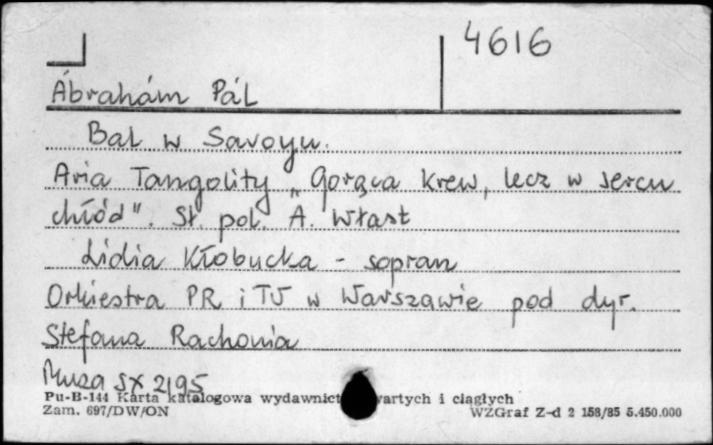 4616
Ábrahám Pál
Bal w Savoyu.
Aria Tangolity „Gorąca krew, lecz w sercu
chłód". Sł. pol. A. Włast
Lidia Kłobucka - sopran
Orkiestra PR i TV w Warszawie pod dyr.
Stefana Rachonia
Muza SX 2195
Pu-B-144 Karta katalogowa wydawnict wartych i ciągłych
Zam. 697/DW/ON WZGraf Z-d 2 158/85 5.450.000